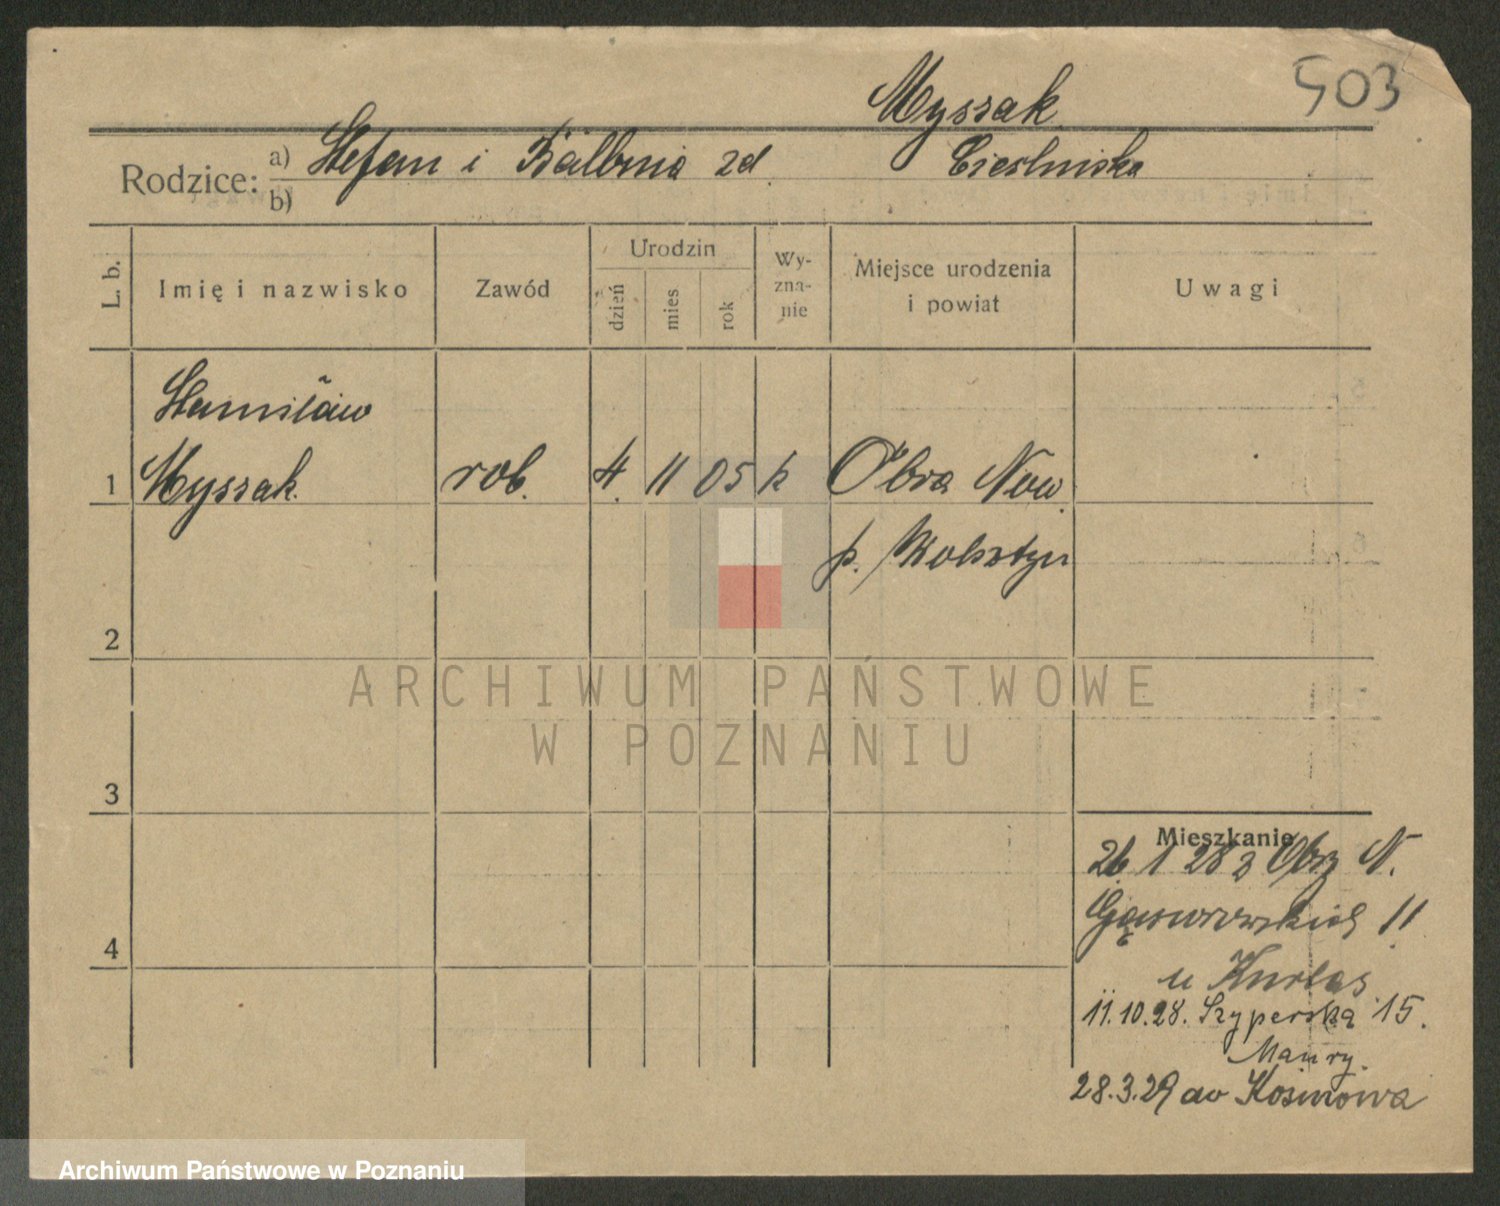 Myszak 503
Rodzice: a) Stefan i Balbina zd. Cieślińska
b)
L. b. Imię i nazwisko Zawód Urodzin dzień mies rok Wy-zna-nie Miejsce urodzenia i powiat Uwagi
Stanisław
1 Myszak rob. 4. 11 05 k Obra Now.
p. Wolsztyn
2
ARCHIWUM PAŃSTWOWE
W POZNANIU
3
Mieszkanie
26 1 28 z Obry N.
11
u Kurlas
4
11.10.28. Szyperska 15.
Maury.
28.3.29 do Kosinowa
Archiwum Państwowe w Poznaniu